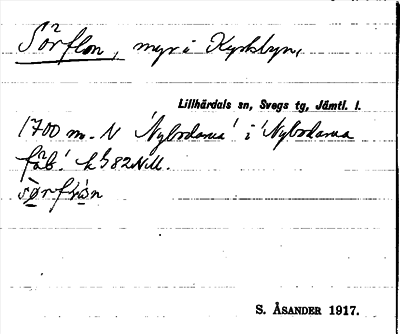 Sörflon, myr i Kyrkbyn,
Lillhärdals sn, Svegs tg, Jämtl. l.
1700 m. N 'Nybodarna' i 'Nybodarna
fäb.' k. 82 NW.
S. ÅSANDER 1917.